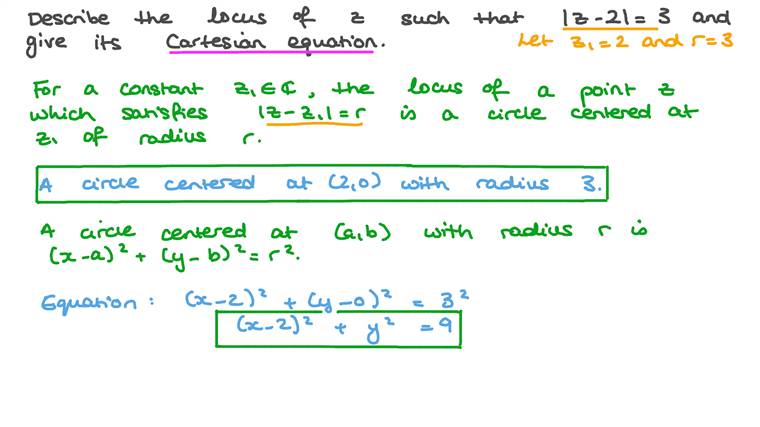 Describe the locus of z such that |z-2| = 3 and
give its Cartesian equation. Let z₁=2 and r=3
For a constant z₁∈ℂ, the locus of a point z
which satisfies |z-z₁|=r is a circle centered at
z₁ of radius r.
A circle centered at (2,0) with radius 3.
A circle centered at (a,b) with radius r is
(x-a)² + (y-b)² = r².
Equation: (x-2)² + (y-0)² = 3²
(x-2)² + y² = 9